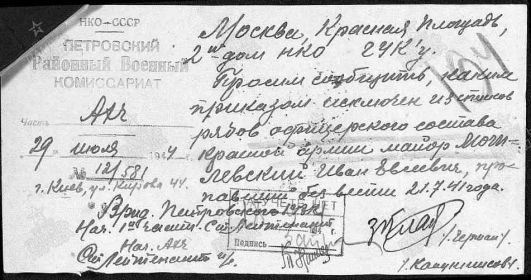 НКО-СССР
ПЕТРОВСКИЙ
Районный Военный
КОМИССАРИАТ
Часть
29 июля 1944
№ 12/581
г. Киев, ул. Кирова 44
Москва, Красная площадь,
2й дом НКО ГУК'у.
Просим сообщить, каким
приказом исключен из списков
рядов офицерского состава
красной армии майор Моги-
левский Иван Евсеевич, про-
павший без вести 21.7.41 года.
Врид. Петровского РВК
Нач. 1й части Ст. Лейтенант
Нач.
Ст. Лейтенант
Подпись